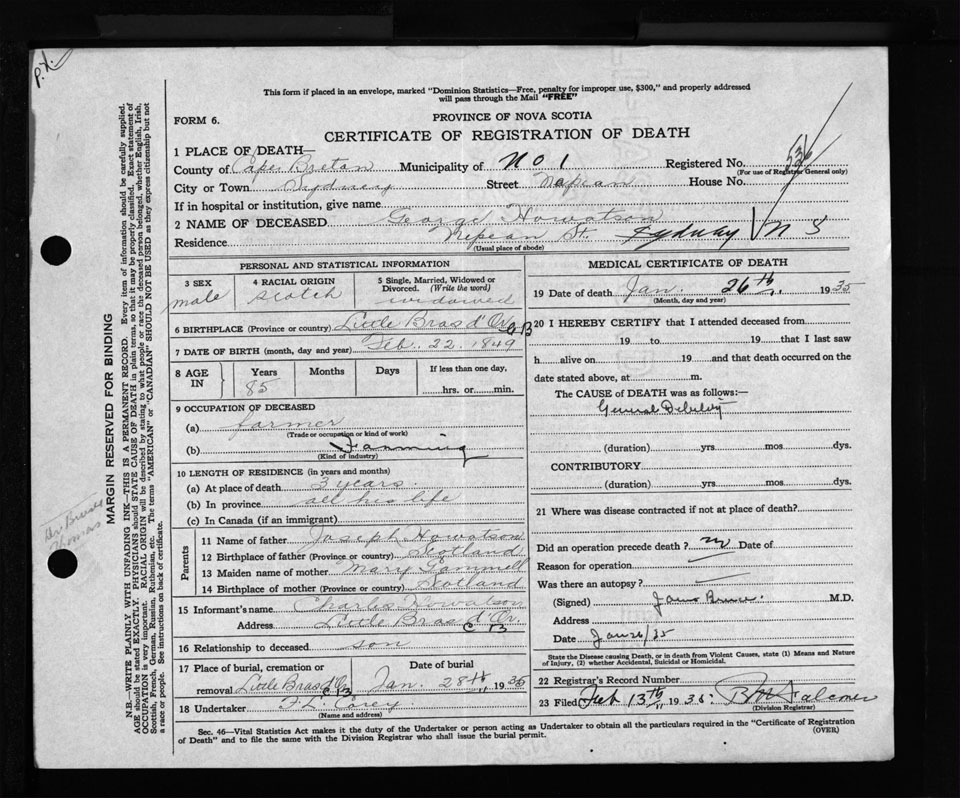 P.X.
This form if placed in an envelope, marked "Dominion Statistics—Free, penalty for improper use, $300," and properly addressed
will pass through the Mail "FREE"
FORM 6.
PROVINCE OF NOVA SCOTIA
CERTIFICATE OF REGISTRATION OF DEATH
1 PLACE OF DEATH—
County of Cape Breton Municipality of No 1 Registered No. 536
(For use of Registrar General only)
City or Town Sydney Street Nepean House No.
If in hospital or institution, give name
2 NAME OF DECEASED George Howatson
Residence Nepean St. Sydney N S
(Usual place of abode)
PERSONAL AND STATISTICAL INFORMATION
3 SEX male
4 RACIAL ORIGIN Scotch
5 Single, Married, Widowed or Divorced. (Write the word) widowed
6 BIRTHPLACE (Province or country) Little Bras d'Or C B
7 DATE OF BIRTH (month, day and year) Feb. 22. 1849
8 AGE IN Years 85 Months Days If less than one day, hrs. or min.
9 OCCUPATION OF DECEASED
(a) farmer
(Trade or occupation or kind of work)
(b) Farming
(Kind of industry)
10 LENGTH OF RESIDENCE (in years and months)
(a) At place of death 3 years.
(b) In province all his life
(c) In Canada (if an immigrant)
Parents
11 Name of father Joseph Howatson
12 Birthplace of father (Province or country) Scotland
13 Maiden name of mother Mary Gammell
14 Birthplace of mother (Province or country) Scotland
15 Informant's name Charles Howatson
Address Little Bras d'Or. C B
16 Relationship to deceased son
17 Place of burial, cremation or removal Little Bras d'Or C B Date of burial Jan. 28th 1935
18 Undertaker F. L. Corey
(Name and address)
MEDICAL CERTIFICATE OF DEATH
19 Date of death Jan. 26th, 1935
(Month, day and year)
20 I HEREBY CERTIFY that I attended deceased from
19 to 19 that I last saw
h alive on 19 and that death occurred on the
date stated above, at m.
The CAUSE of DEATH was as follows:—
General Debility
(duration) yrs mos dys.
CONTRIBUTORY
(duration) yrs. mos. dys.
21 Where was disease contracted if not at place of death?
Did an operation precede death? no Date of
Reason for operation
Was there an autopsy?
(Signed) James Bruce. M.D.
Address
Date Jan 26/35
State the Disease causing Death, or in death from Violent Causes, state (1) Means and Nature
of Injury, (2) whether Accidental, Suicidal or Homicidal.
22 Registrar's Record Number
23 Filed Feb 13th 1935
(Division Registrar)
Sec. 46—Vital Statistics Act makes it the duty of the Undertaker or person acting as Undertaker to obtain all the particulars required in the "Certificate of Registration
of Death" and to file the same with the Division Registrar who shall issue the burial permit.
(OVER)
MARGIN RESERVED FOR BINDING
N.B.—WRITE PLAINLY WITH UNFADING INK—THIS IS A PERMANENT RECORD. Every item of information should be carefully supplied.
AGE should be stated EXACTLY. PHYSICIANS should STATE CAUSE OF DEATH in plain terms, so that it may be properly classified. Exact statement of
OCCUPATION is very important. RACIAL ORIGIN will be described by stating to what people or race the deceased person belonged, whether English, Irish,
Scottish, French, German, Russian, Ruthenian, etc. The terms "AMERICAN" or "CANADIAN" SHOULD NOT BE USED as they express citizenship but not
a race or people. See instructions on back of certificate.
Thomas